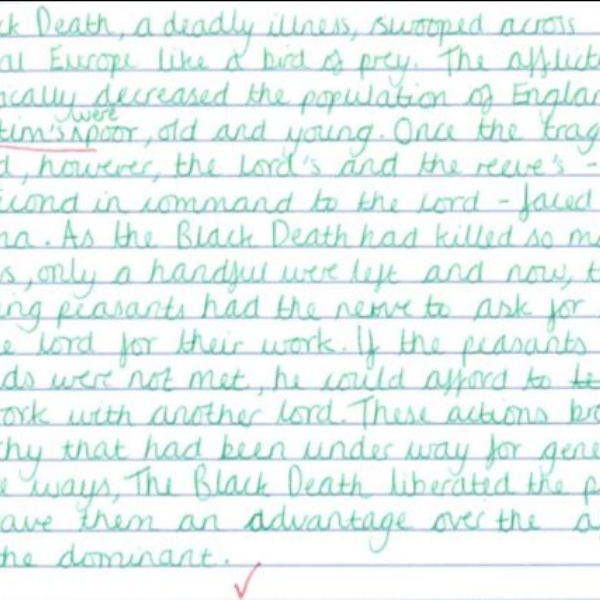 ck Death, a deadly illness, swooped across
al Europe like a bird of prey. The afflict
ically decreased the population of Englan
were
tim's ^ poor, old and young. Once the trag
d, however, the lord's and the reeve's -
cond in command to the lord - faced
ma. As the Black Death had killed so m
s, only a handful were left and now, t
ing peasants had the nerve to ask for
e lord for their work. If the peasants
ds were not met, he could afford to
ork with another lord. These actions br
chy that had been under way for gene
e ways, The Black Death liberated the p
ave them an advantage over the a
he dominant.